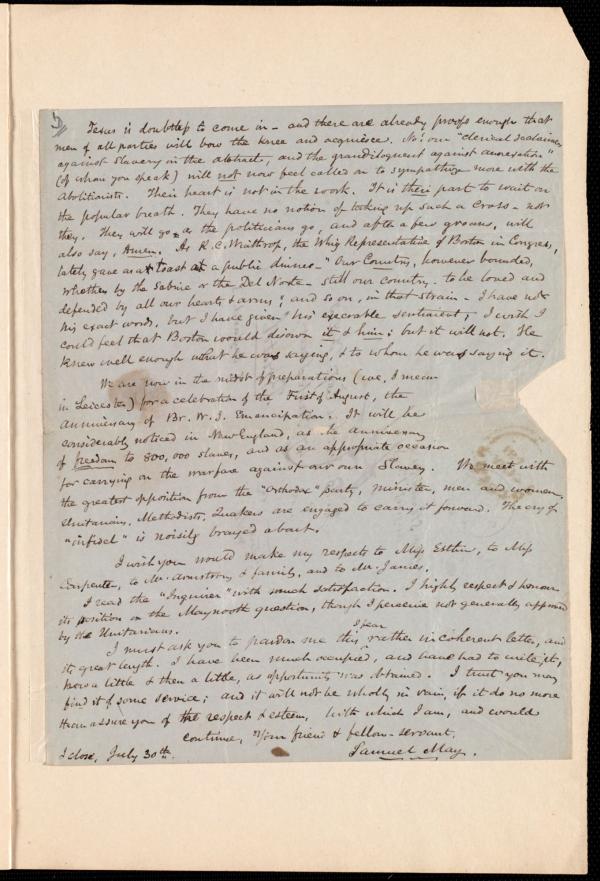 5
Texas is doubtless to come in - and there are already proofs enough that
men of all parties will bow the knee and acquiesce. No! our "clerical declaimers
against Slavery in the abstract, and the grandiloquent against annexation"
(of whom you speak) will not now feel called on to sympathize more with the
Abolitionists. Their heart is not in the work. It is their part to wait on
the popular breath. They have no notion of taking up such a Cross - not
they. They will go as the politicians go, and after a few groans, will
also say, Amen. As R. C. Winthrop, the Whig Representative of Boston in Congress,
lately gave as a toast at a public dinner - "Our Country, however bounded,
whether by the Sabine or the Del Norte - still our Country - to be loved and
defended by all our hearts & arms; and so on, in that strain - I have not
his exact words, but I have given his execrable sentiment, - I wish I
could feel that Boston would disown it & him; but it will not. He
knew well enough what he was saying, & to whom he was saying it.
We are now in the midst of preparations (we, I mean
in Leicester) for a celebration of the First of August, the
anniversary of Br. W. I. Emancipation. It will be
considerably noticed in New England, as the anniversary
of freedom to 800,000 slaves, and as an appropriate occasion
for carrying on the warfare against our own Slavery. We meet with
the greatest opposition from the "Orthodox" party, minister, men and women.
Unitarians, Methodists, Quakers are engaged to carry it forward. The cry of
"infidel" is noisily brayed about.
I wish you would make my respects to Miss Estlin, to Miss
Carpenter, to Mr. Armstrong & family, and to Mr. James.
I read the "Inquirer" with much satisfaction. I highly respect & honour
its position on the Maynooth question, though I perceive not generally approved
by the Unitarians.
I must ask you to pardon me this, I fear rather incoherent letter, and
its great length. I have been much occupied, and have had to write it,
now a little & then a little, as opportunity was obtained. I trust you may
find it of some service; and it will not be wholly in vain, if it do no more
than assure you of the respect & esteem, with which I am, and would
continue, Your friend & fellow-servant,
I close, July 30th. Samuel May.